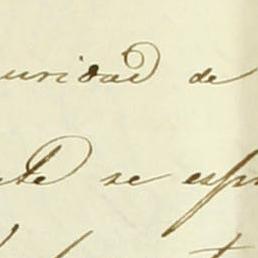 uridad de
nte se esp